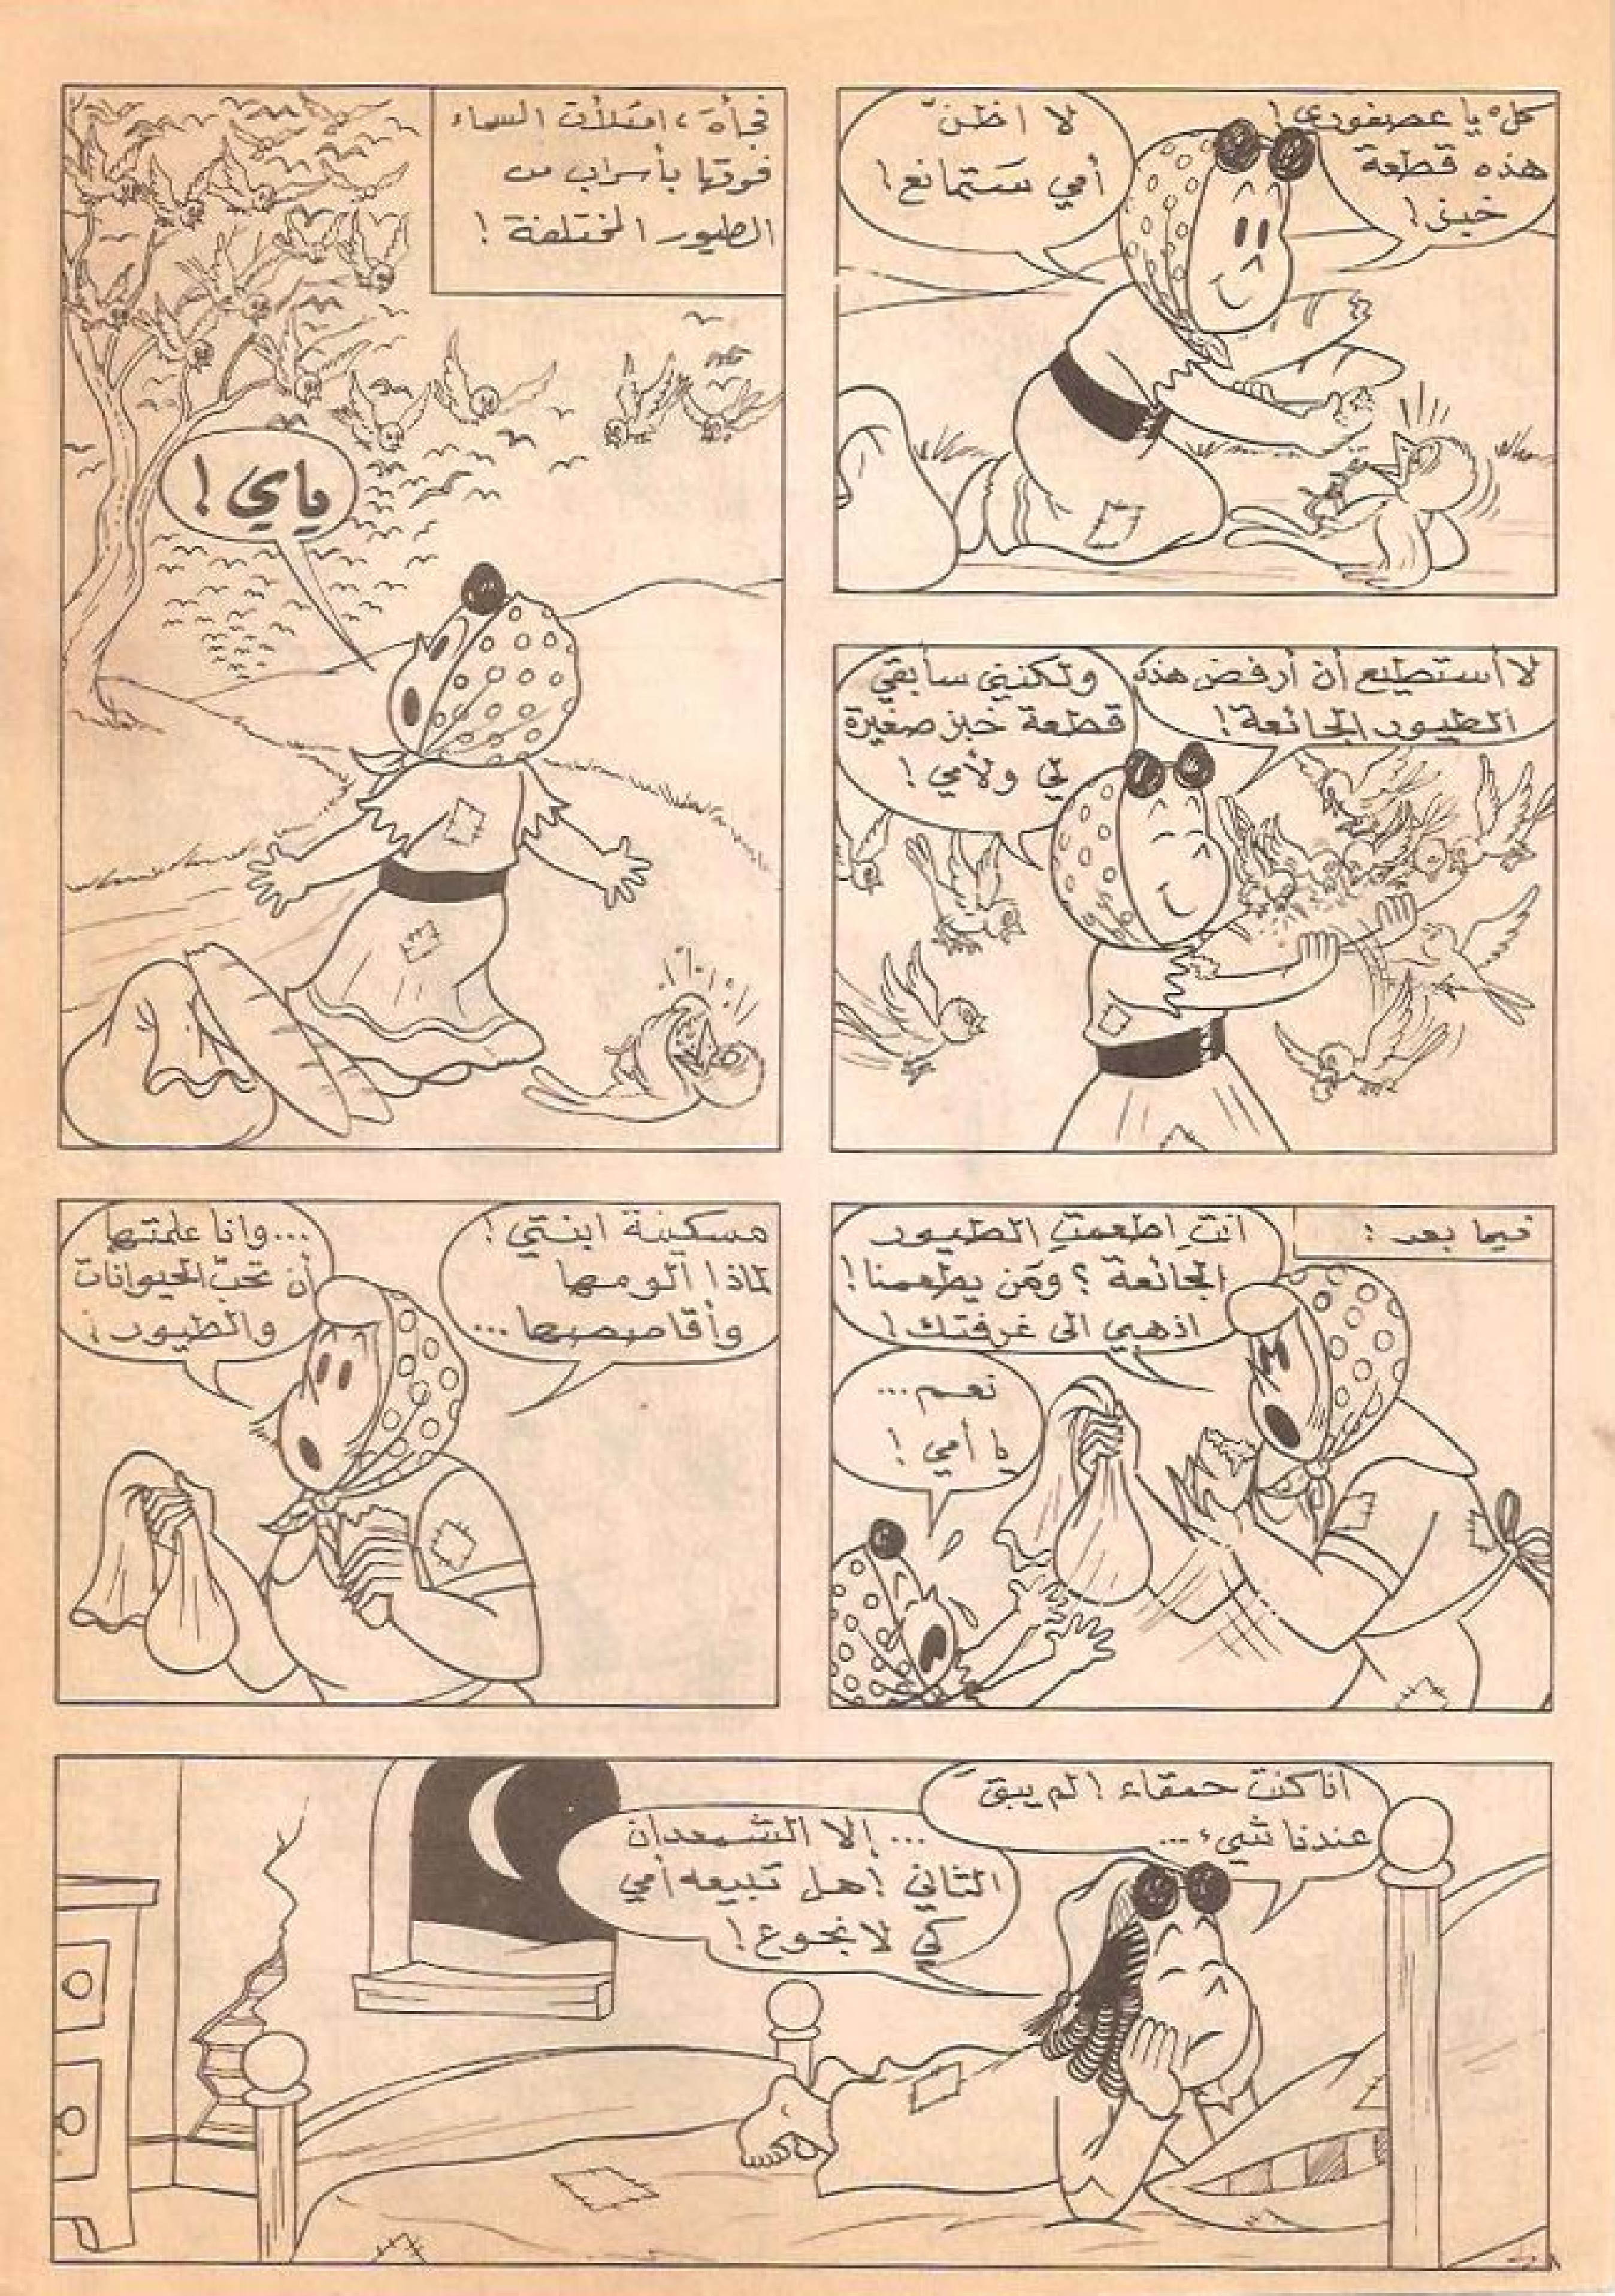 كل يا عصفوري!
هذه قطعة
خبز!
لا اظنّ
أمي ستمانع!
فجأة، امتلأت السماء
فوقها بأسراب من
الطيور المختلفة!
ياي!
لا أستطيع أن أرفض هذه
الطيور الجائعة!
ولكنني سأبقي
قطعة خبز صغيرة
لي ولأمي!
فيما بعد:
انتِ اطعمتِ الطيور
الجائعة؟ ومَن يطعمنا!
اذهبي الى غرفتك!
نعم...
يا أمي!
مسكينة ابنتي!
لماذا ألومها
وأقاصصها...
...وانا علمتها
أن تحبّ الحيوانات
والطيور!
انا كنت حمقاء! لم يبقَ
عندنا شيء...
...إلا الشمعدان
الثاني! هل تبيعه أمي
كي لا نجوع!